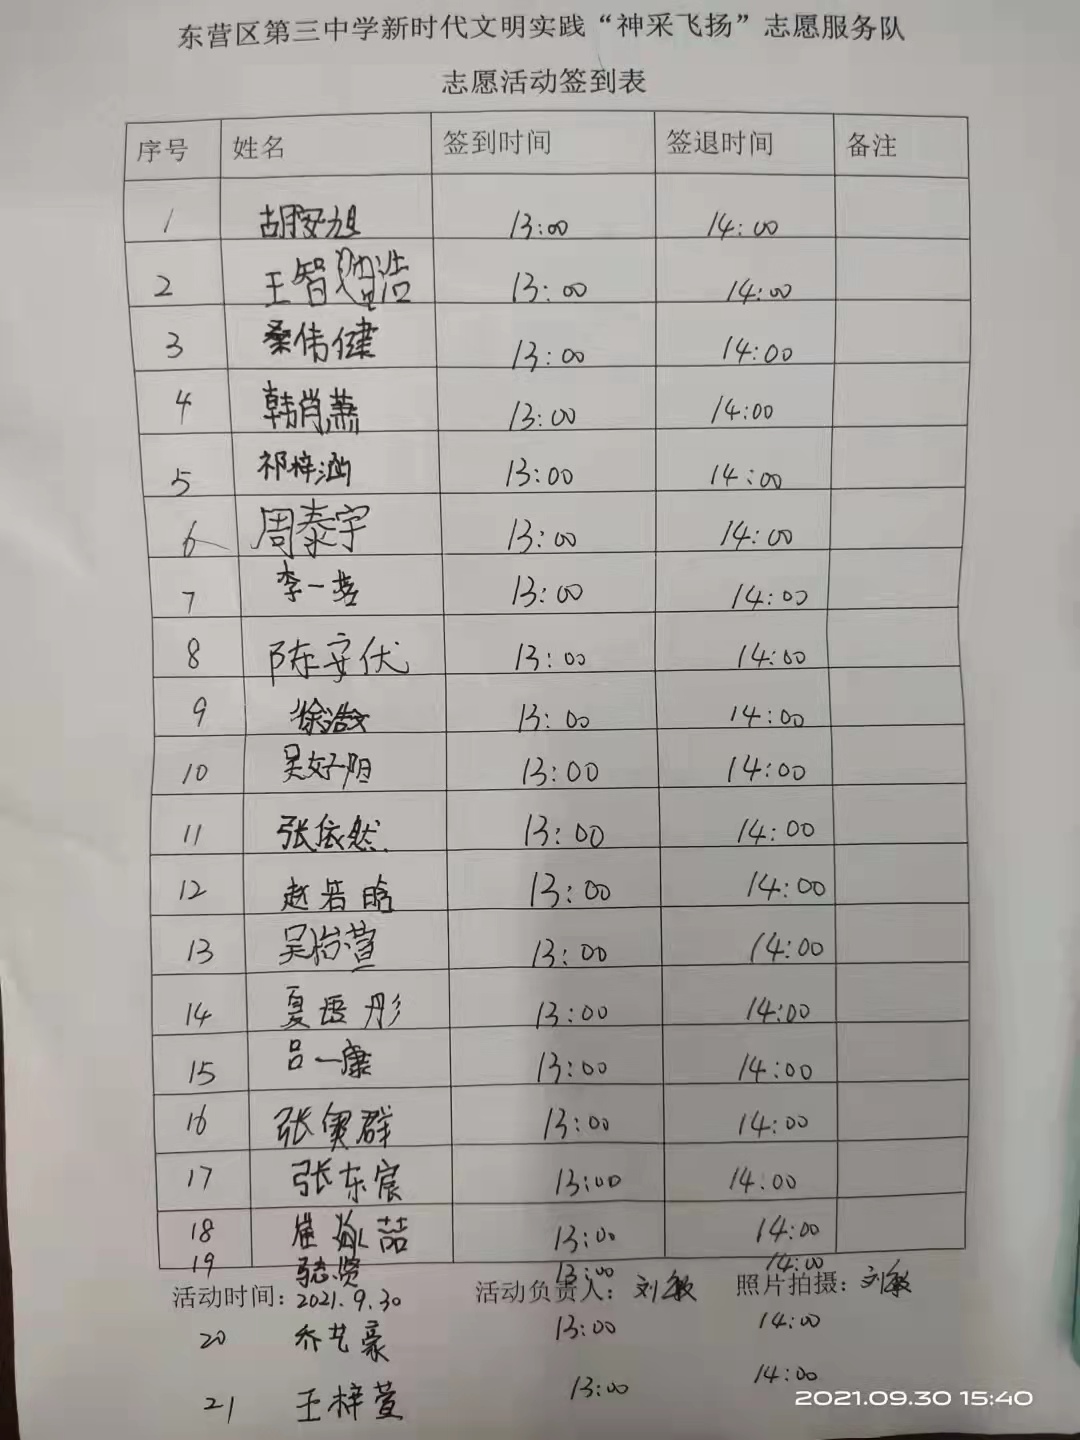 东营区第三中学新时代文明实践“神采飞扬”志愿服务队
志愿活动签到表
序号 姓名 签到时间 签退时间 备注
1 胡安旭 13:00 14:00
2 王智 浩 13:00 14:00
3 桑伟健 13:00 14:00
4 韩肖萧 13:00 14:00
5 祁梓涵 13:00 14:00
6 周泰宇 13:00 14:00
7 李一 13:00 14:00
8 陈安伏 13:00 14:00
9 徐浩文 13:00 14:00
10 吴好阳 13:00 14:00
11 张依然 13:00 14:00
12 赵若晗 13:00 14:00
13 吴怡萱 13:00 14:00
14 夏语彤 13:00 14:00
15 吕一康 13:00 14:00
16 张奥群 13:00 14:00
17 张东宸 13:00 14:00
18 崔 喆 13:00 14:00
19 贤 13:00 14:00
活动时间：2021.9.30 活动负责人：刘敏 照片拍摄：刘敏
20 乔艺豪 13:00 14:00
21 王梓萱 13:00 14:00
2021.09.30 15:40